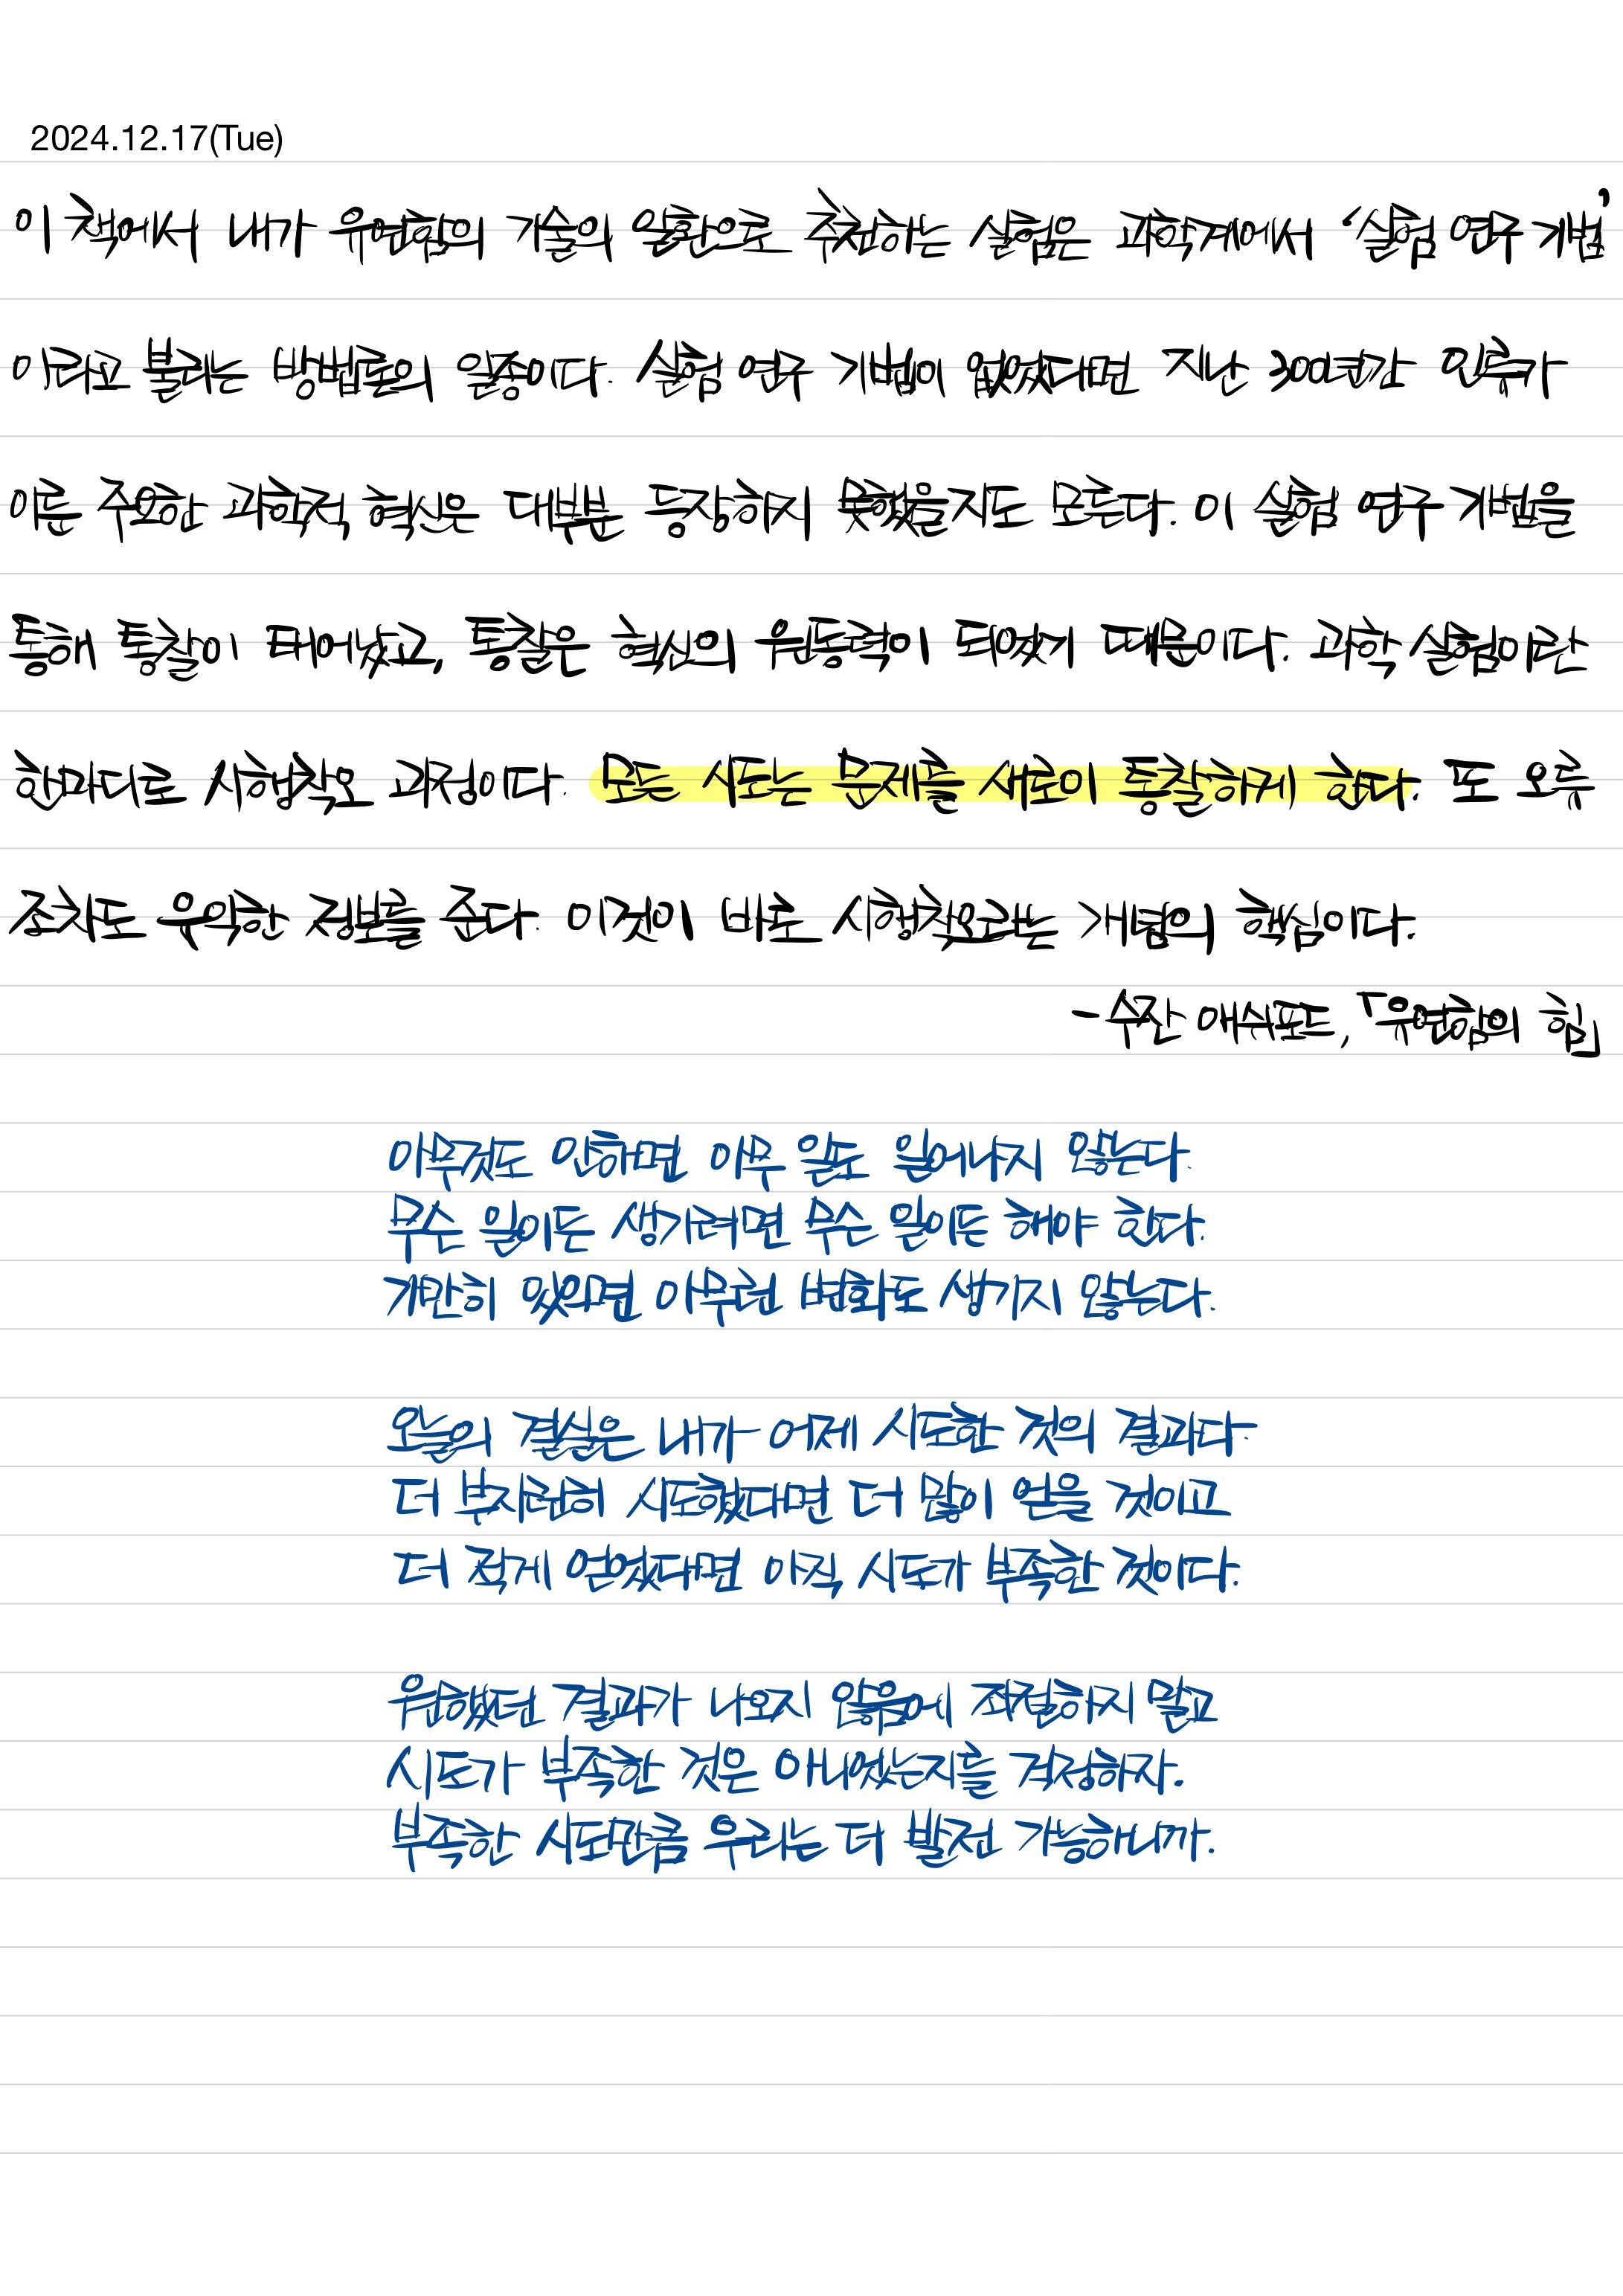 2024.12.17(Tue)
이 책에서 내가 유연함의 기술의 일환으로 추천하는 실험은 과학계에서 '실험 연구 기법'
이라고 불리는 방법론의 일종이다. 실험 연구 기법이 없었다면 지난 300년간 인류가
이룬 주요한 과학적 혁신은 대부분 등장하지 못했을지도 모른다. 이 실험 연구 기법을
통해 통찰이 태어났고, 통찰은 혁신의 원동력이 되었기 때문이다. 과학 실험이란
한마디로 시행착오 과정이다. 모든 시도는 문제를 새로이 통찰하게 한다. 또 오류
조차도 유익한 정보를 준다. 이것이 바로 시행착오라는 개념의 핵심이다.
- 수잔 애쉬포드, 「유연함의 힘」
아무것도 안하면 아무 일도 일어나지 않는다.
무슨 일이든 생기려면 무슨 일이든 해야 한다.
가만히 있으면 아무런 변화도 생기지 않는다.
오늘의 결실은 내가 어제 시도한 것의 결과다
더 부지런히 시도했다면 더 많이 얻을 것이고
더 적게 얻었다면 아직 시도가 부족한 것이다.
원했던 결과가 나오지 않음에 좌절하지 말고
시도가 부족한 것은 아니었는지를 걱정하자.
부족한 시도만큼 우리는 더 발전 가능하니까.